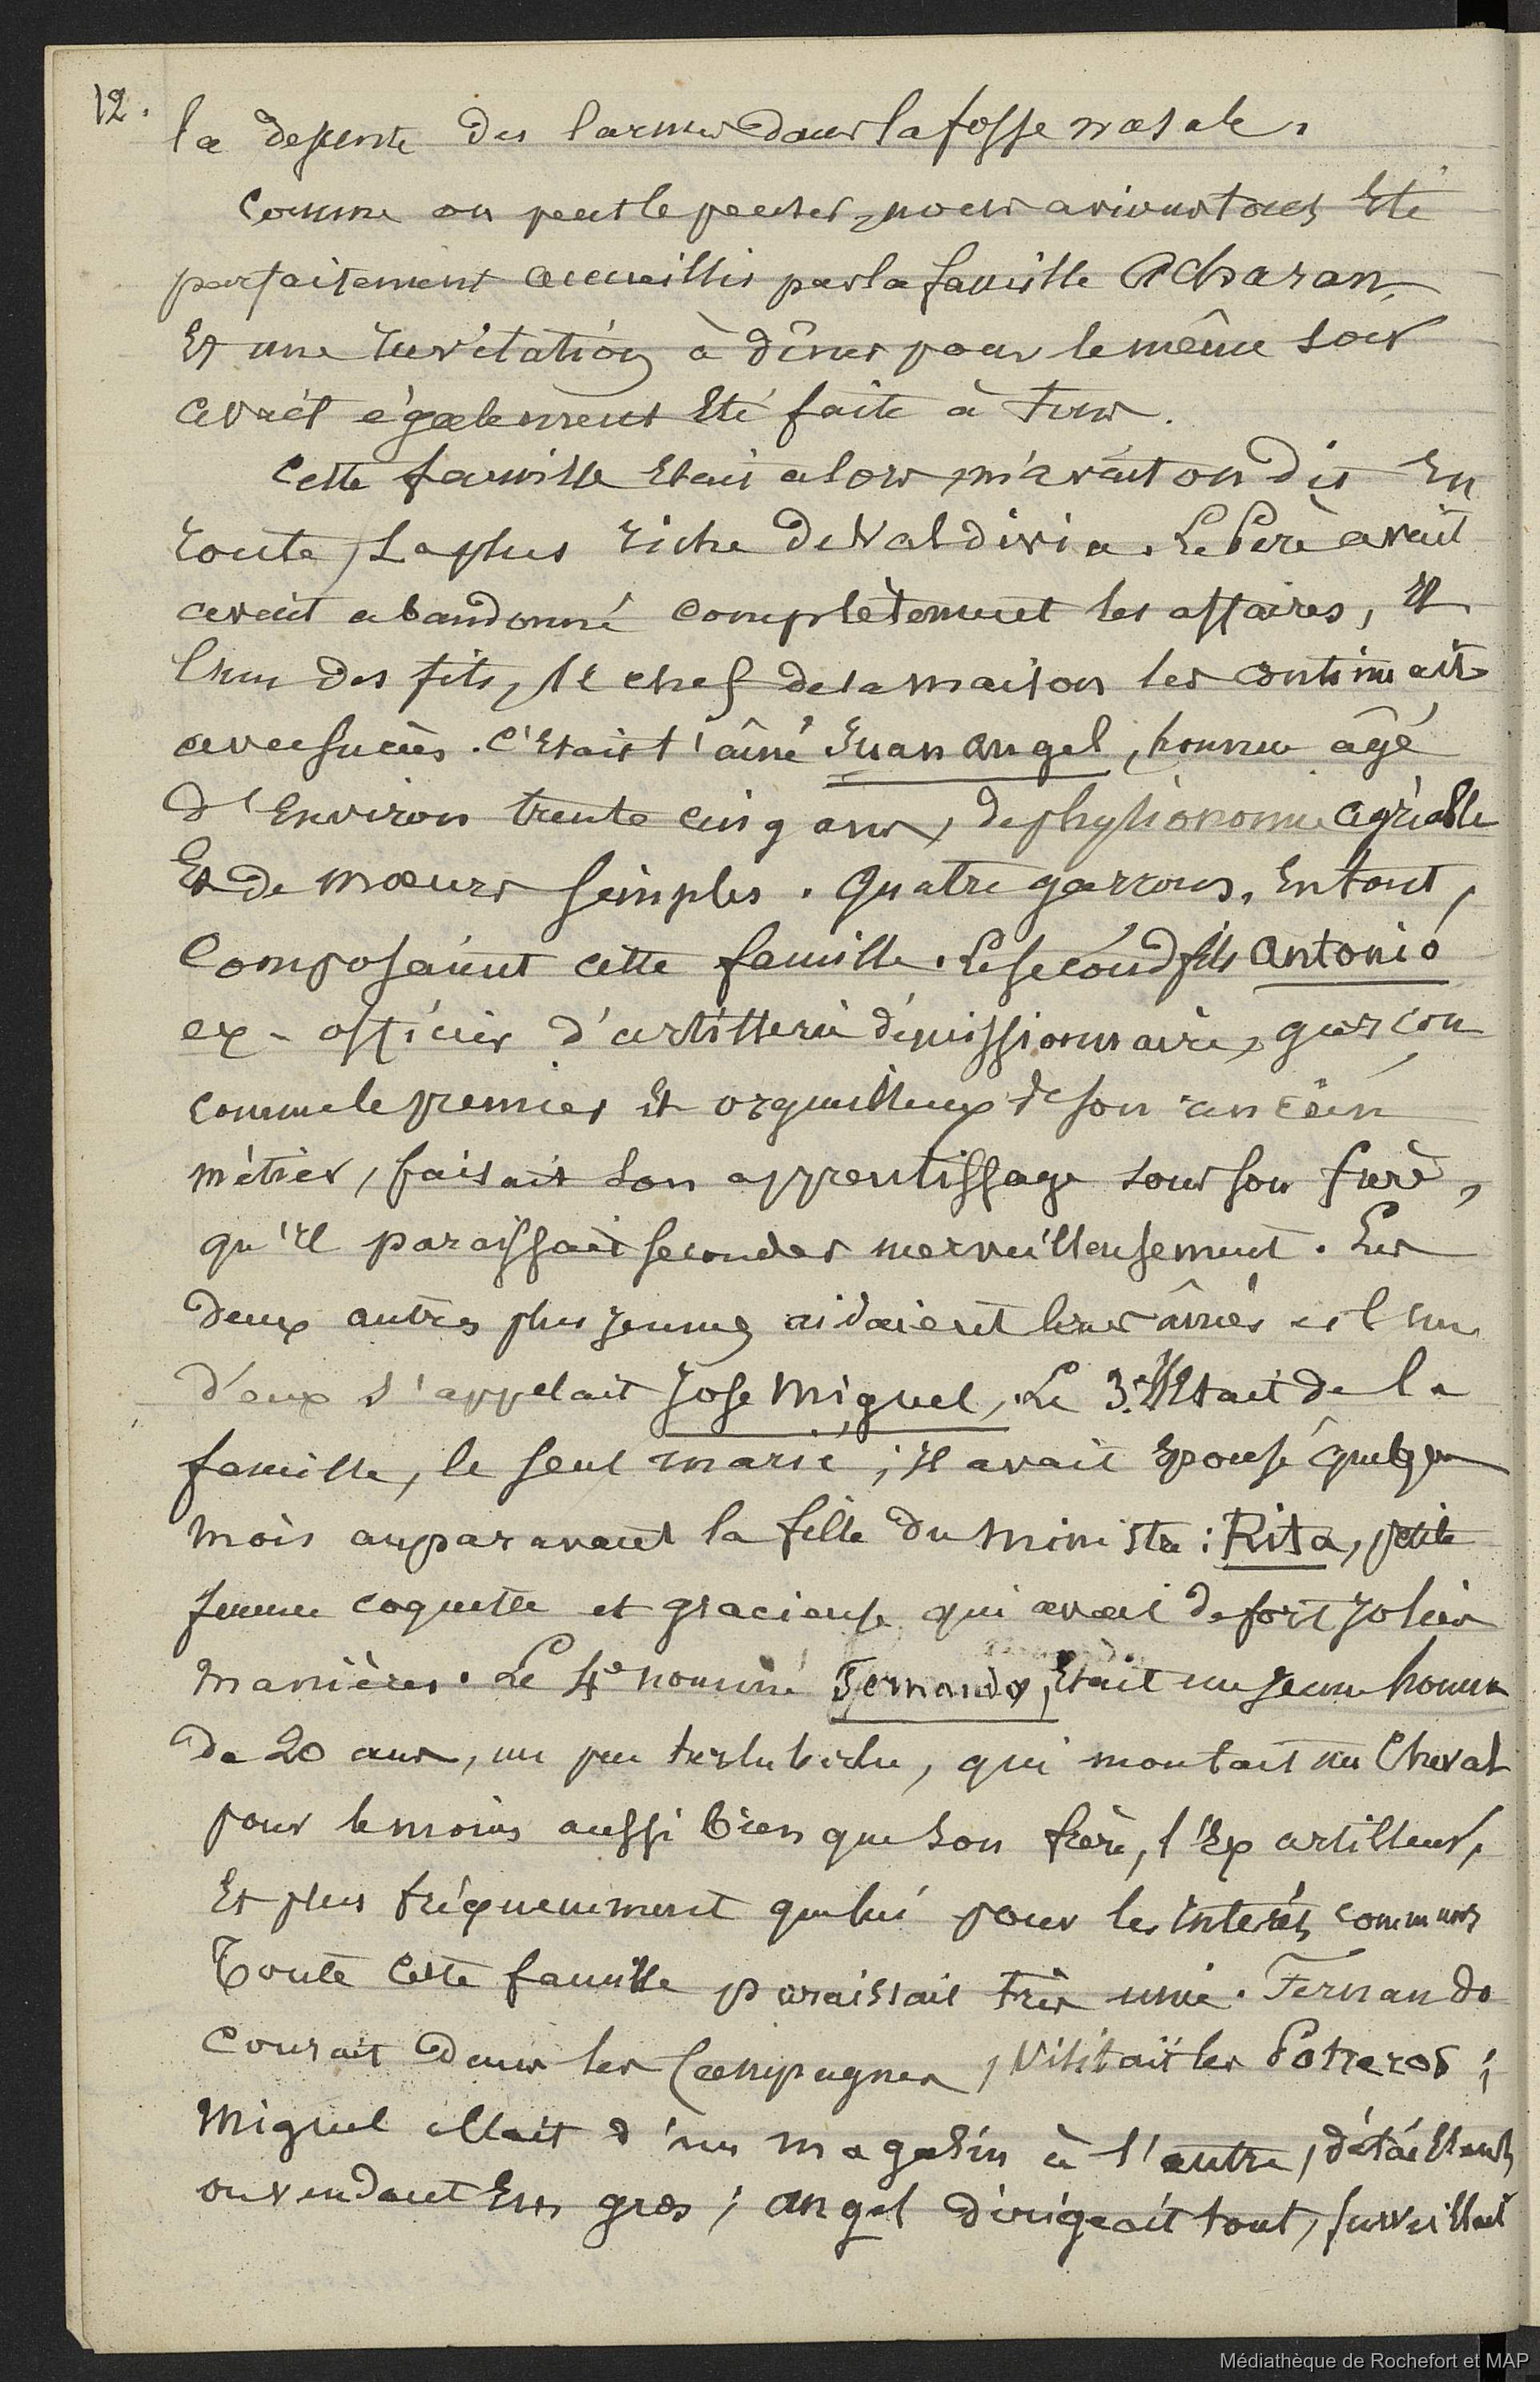 12.
la descente des larmes dans la fosse nasale.
Comme on peut le penser, nous avions tous été
parfaitement accueillis par la famille Acharan,
Et une invitation à dîner pour le même soir
avait également été faite à tous.
Cette famille était alors, m'avait on dit en
route, la plus riche de Valdivia. Le Père avait
avait abandonné complètement les affaires, et
l'un des fils, le chef de la maison les continuait
avec succès. C'était l'aîné Juan Angel, homme âgé
d'Environ trente cinq ans, de physionomie agréable
Et de mœurs simples. Quatre garçons, en tout,
Composaient cette famille. Le second fils Antonio
ex-officier d'artillerie démissionnaire, garçon
comme le premier et orgueilleux de son ancien
métier, faisait son apprentissage sous son frère,
qu'il paraissait seconder merveilleusement. Les
deux autres plus jeunes aidaient leurs aînés et l'un
d'eux s'appelait Jose Miguel. Le 3e était de la
famille, le seul marié; il avait épousé quelques
mois auparavant la fille du ministre: Rita, petite
femme coquette et gracieuse qui avait de fort jolies
manières. Le 4e nommé Fernando, était un jeune homme
de 20 ans, un peu turlubu, qui montait un Cheval
pour le moins aussi bien que son frère, l'Ex artilleur,
Et plus fréquemment que lui pour les intérêts communs
Toute cette famille paraissait très unie. Fernando
Courait dans les Campagnes, visitait les Potreros;
Miguel allait d'un magasin à l'autre, détaillant
ou vendant en gros; Angel dirigeait tout, surveillait
Médiathèque de Rochefort et MAP